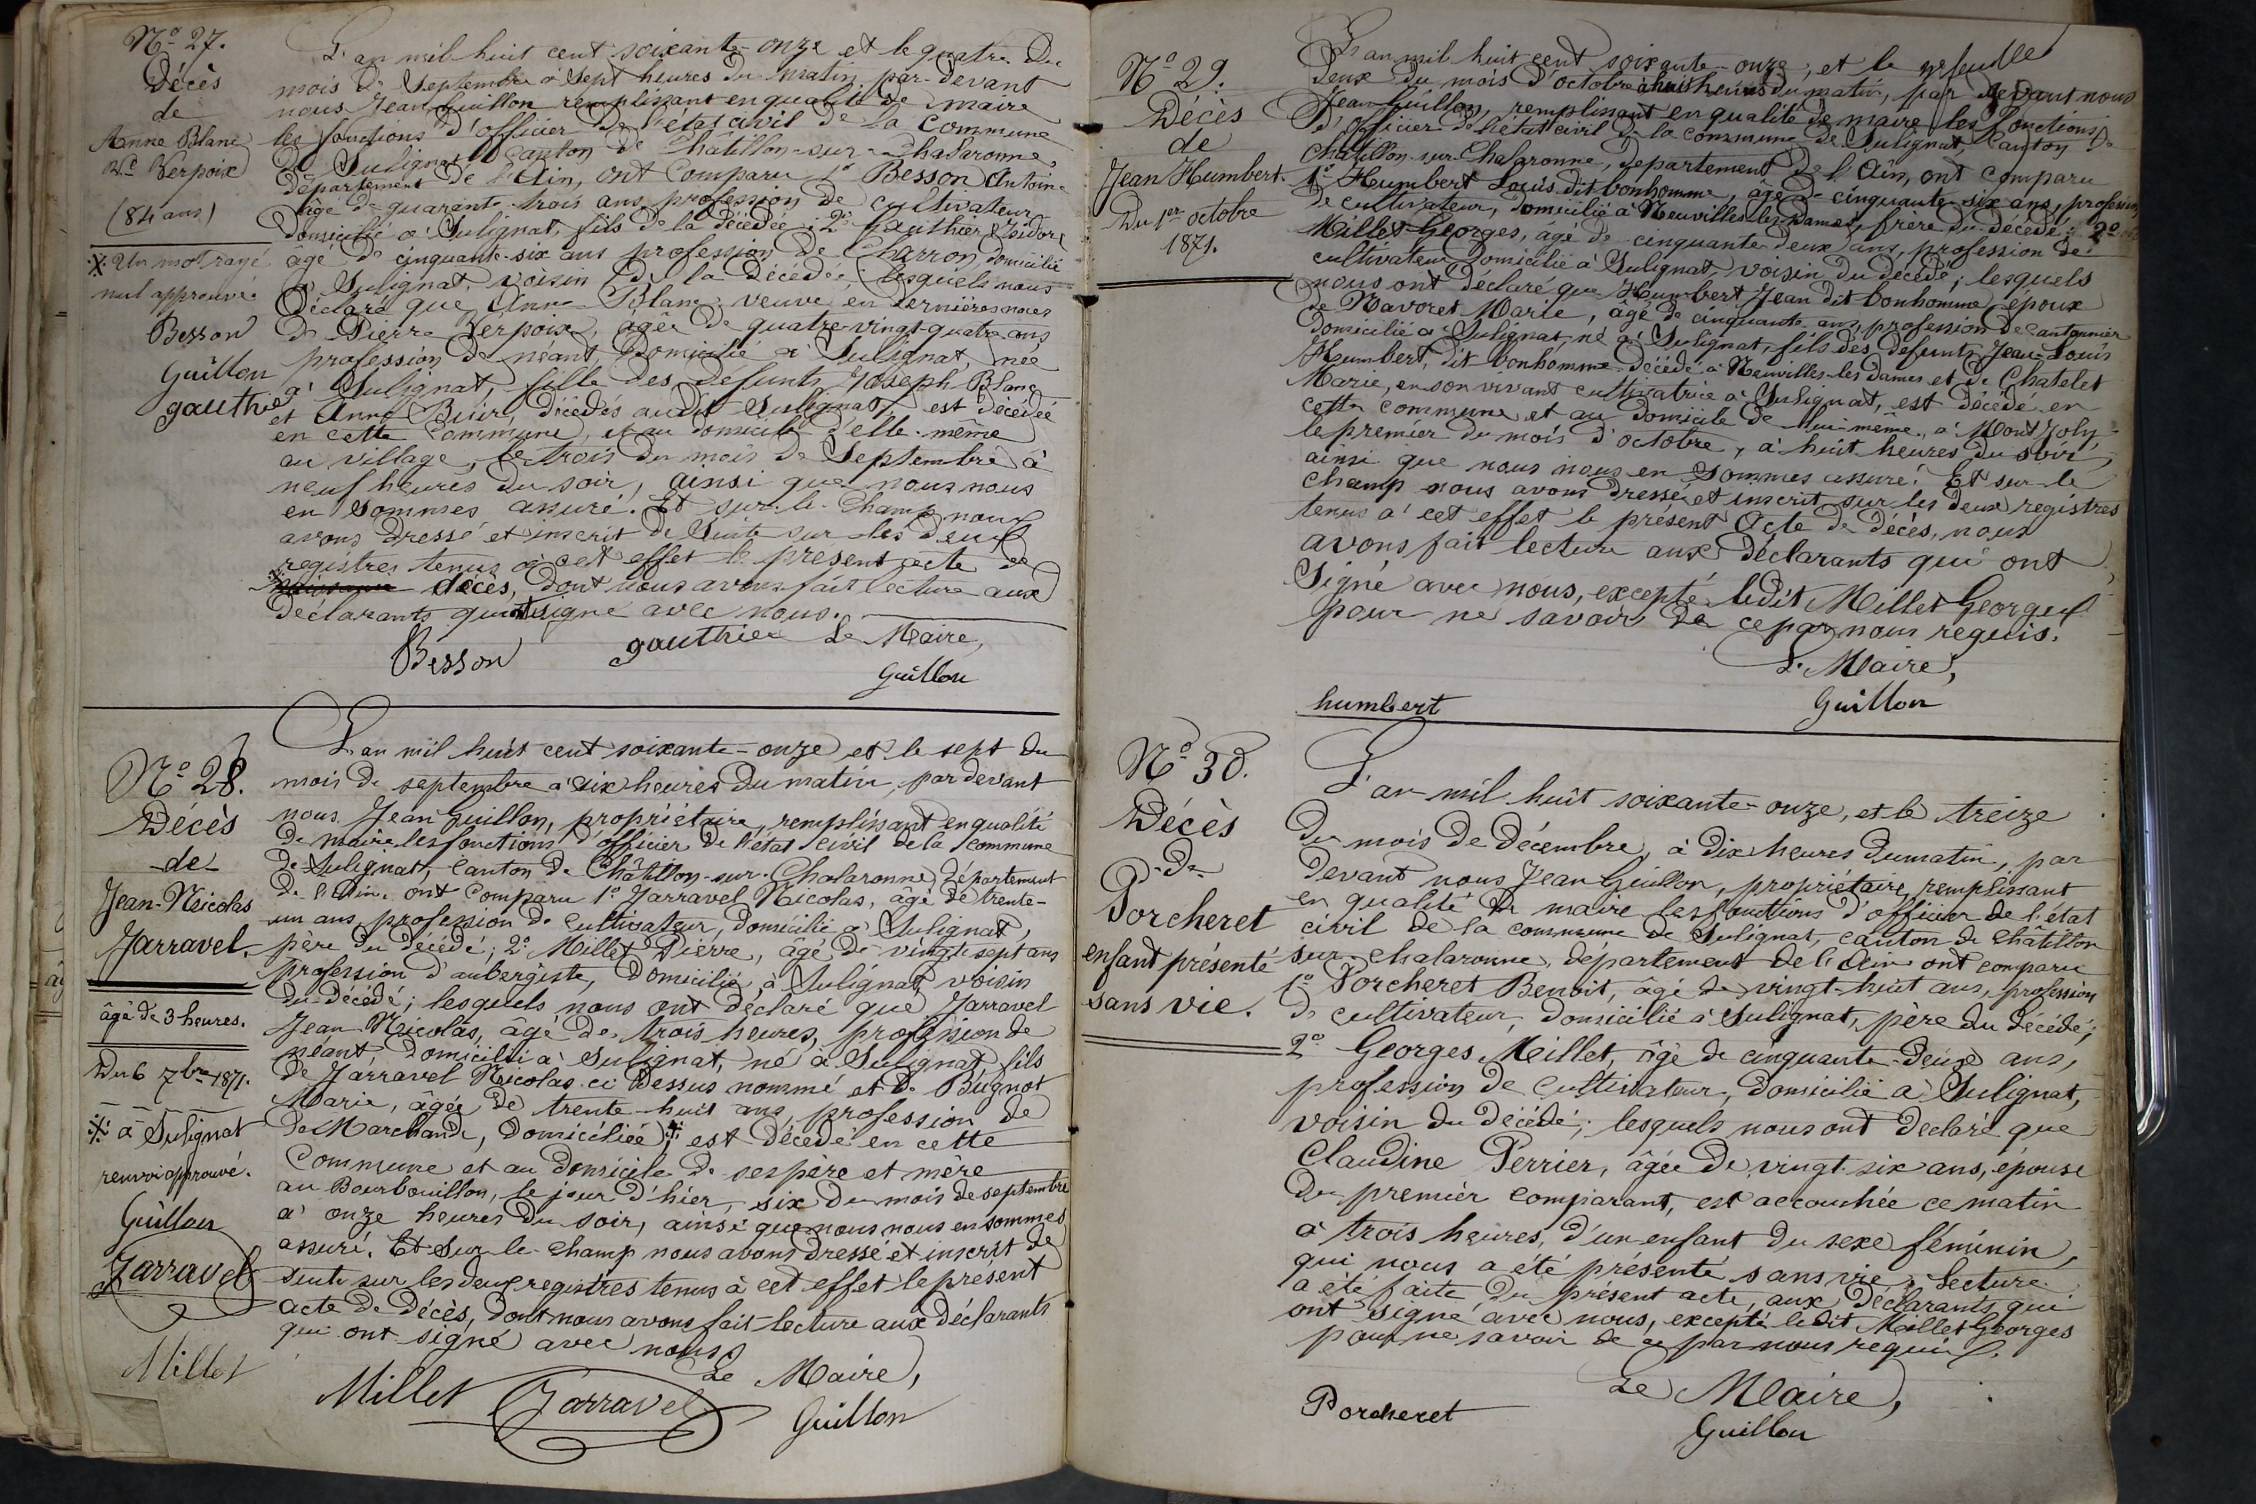 N.o 27.
Décès
de
Anne Blanc
Vve Verpoix
(84 ans)
※ Un mot rayé
nul approuvé.
Besson
Guillon
gauthier
L'an mil huit cent soixante-onze et le quatre du
mois de Septembre à sept heures du matin par-devant
nous Jean Guillon remplissant en qualité de maire
les fonctions d'officier de l'état civil de la commune
de Sulignat canton de Châtillon-sur-Chalaronne,
département de l'Ain, ont comparu 1o Besson Antoine
âgé de quarante-trois ans, profession de cultivateur
domicilié à Sulignat, fils de la décédée; 2o Gauthier Isidore
âgé de cinquante-six ans profession de Charron, domicilié
à Sulignat, voisin de la décédée, lesquels nous
Déclaré que Anne Blanc veuve en dernières noces
de Pierre Verpoix, âgée de quatre-vingt-quatre ans
profession de néant, domicilié à Sulignat, née
à Sulignat, fille des defunts Joseph Blanc
et Anne décédés audit Sulignat, est décédée
en cette commune, et au domicile d'elle-même
au village, le trois du mois de Septembre à
neuf heures du soir, ainsi que nous nous
en sommes assuré. Et sur-le-Champ nous
avons dressé et inscrit de suite sur les deux
registres tenus à cet effet le présent acte de
※ naissance décès, dont nous avons fait lecture aux
Déclarants qui ont signé avec nous.
Besson gauthier Le Maire,
Guillon
N.o 28.
Décès
de
Jean-Nicolas
Jarravel.
âgé de 3 heures.
Du 6 7bre 1871.
※ à Sulignat
renvoi approuvé.
Guillon
Jarravel
Millet
L'an mil huit cent soixante-onze et le sept du
mois de septembre à six heures du matin, par devant
nous Jean Guillon, propriétaire, remplissant en qualité
de maire les fonctions d'officier de l'état civil de la commune
de Sulignat, canton de Châtillon-sur-Chalaronne, Département
de l'Ain. ont comparu 1o Jarravel Nicolas, âgé de trente-
un ans, profession de cultivateur, domicilié à Sulignat,
père du décédé; 2o Millet Pierre, âgé de vingt-sept ans
profession d'aubergiste, domicilié à Sulignat voisin
du décédé; lesquels nous ont déclaré que Jarravel
Jean-Nicolas, âgé de trois heures, profession de
néant, domicilié à Sulignat, né à Sulignat fils
de Jarravel Nicolas ci dessus nommé et de Bugnot
Marie, âgée de trente-huit ans, profession de
de Marchande, domiciliée ※ est décédé en cette
commune et au domicile de ses père et mère
au Bourbouillon, le jour d'hier, six du mois de septembre
à onze heures du soir, ainsi que nous nous en sommes
assuré. Et Sur-le-Champ nous avons dressé et inscrit de
suite sur les deux registres tenus à cet effet le présent
acte de Décès, dont nous avons fait lecture aux déclarants
qui ont signé avec nous
Le Maire,
Millet Jarravel Guillon
N.o 29.
Décès
de
Jean Humbert.
Du 1er octobre
1871.
L'an mil huit cent soixante-onze, et le
deux du mois d'octobre à huit heures du matin, par devant nous
Jean Guillon, remplissant en qualité de maire les fonctions
d'officier de l'état civil de la commune de Sulignat canton de
Châtillon-sur-Chalaronne, département de l'Ain, ont comparu
1o Humbert Louis dit bonhomme, âgé de cinquante-six ans, profession
de cultivateur, domicilié à Neuvilles-les Dames, frère du décédé; 2o
Millet Georges, agé de cinquante deux ans, profession de
cultivateur domicilié à Sulignat, voisin du décédé; lesquels
nous ont déclaré que Humbert Jean dit bonhomme époux
de Navoret Marie, âgé de cinquante ans, profession de cantonnier
domicilié à Sulignat, né à Sulignat, fils des defunts Jean-Louis
Humbert, dit bonhomme décédé à Neuvilles-les Dames et de Chatelet
Marie, en son vivant cultivatrice à Sulignat, est décédé en
cette commune et au domicile de lui-même, à Mont Joly,
le premier du mois d'octobre, à huit heures du soir,
ainsi que nous nous en sommes assuré. Et sur-le
Champ nous avons dressé et inscrit sur les deux registres
tenus à cet effet le présent Acte de Décès, nous
avons fait lecture aux Déclarants qui ont
Signé avec nous, excepté ledit Millet Georges
pour ne savoir de ce par nous requis.
Le Maire,
humbert Guillon
N.o 30.
Décès
de
Porcheret
enfant présenté
sans vie.
L'an mil huit soixante-onze, et le treize
du mois de Décembre, à dix heures du matin, par
devant nous Jean Guillon, propriétaire, remplissant
en qualité de maire les fonctions d'officier de l'état
civil de la commune de Sulignat, canton de Châtillon
sur-chalaronne, département de l'Ain ont comparu
1o Porcheret Benoit, âgé de vingt-huit ans, profession
de cultivateur, domicilié à Sulignat, père du décédé;
2o Georges Millet, âgé de cinquante-deux ans,
profession de cultivateur, domicilié à Sulignat,
voisin du décédé; lesquels nous ont declaré que
Claudine Perrier, âgée de vingt-six ans, épouse
du premier comparant, est accouchée ce matin
à trois heures, d'un enfant du sexe féminin,
qui nous a été présenté sans vie. Lecture
a été faite du présent acte, aux Déclarants qui
ont signé avec nous, excepté ledit Millet Georges
pour ne savoir de ce par nous requis.
Le Maire,
Porcheret Guillon